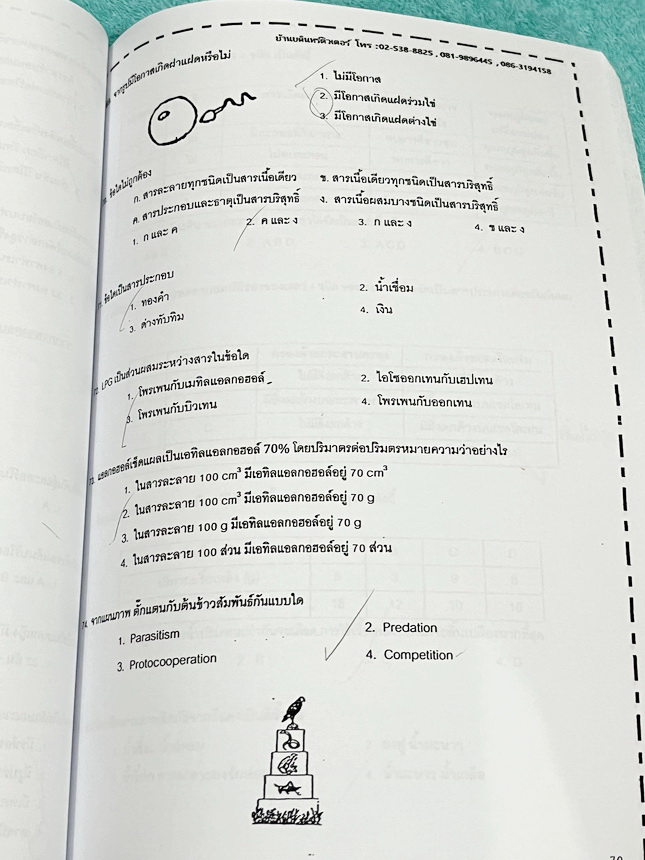 บ้านบดินทร์ติวเตอร์ โทร :02-538-8825 , 081-9896445 , 086-3194158
จากรูปมีโอกาสเกิดฝาแฝดหรือไม่
1. ไม่มีโอกาส
2. มีโอกาสเกิดแฝดร่วมไข่
3. มีโอกาสเกิดแฝดต่างไข่
ข้อใดไม่ถูกต้อง
ก. สารละลายทุกชนิดเป็นสารเนื้อเดียว ข. สารเนื้อเดียวทุกชนิดเป็นสารบริสุทธิ์
ค. สารประกอบและธาตุเป็นสารบริสุทธิ์ ง. สารเนื้อผสมบางชนิดเป็นสารบริสุทธิ์
1. ก และ ค 2. ค และ ง 3. ก และ ง 4. ข และ ง
71. ข้อใดเป็นสารประกอบ
1. ทองคำ 2. น้ำเชื่อม
3. ด่างทับทิม 4. เงิน
72. LPG เป็นส่วนผสมระหว่างสารในข้อใด
1. โพรเพนกับเมทิลแอลกอฮอล์ 2. ไอโซออกเทนกับเฮปเทน
3. โพรเพนกับบิวเทน 4. โพรเพนกับออกเทน
73. แอลกอฮอล์เช็ดแผลเป็นเอทิลแอลกอฮอล์ 70% โดยปริมาตรต่อปริมตรหมายความว่าอย่างไร
1. ในสารละลาย 100 cm³ มีเอทิลแอลกอฮอล์อยู่ 70 cm³
2. ในสารละลาย 100 cm³ มีเอทิลแอลกอฮอล์อยู่ 70 g
3. ในสารละลาย 100 g มีเอทิลแอลกอฮอล์อยู่ 70 g
4. ในสารละลาย 100 ส่วน มีเอทิลแอลกอฮอล์อยู่ 70 ส่วน
74. จากแผนภาพ ตั๊กแตนกับต้นข้าวสัมพันธ์กันแบบใด
1. Parasitism 2. Predation
3. Protocooperation 4. Competition